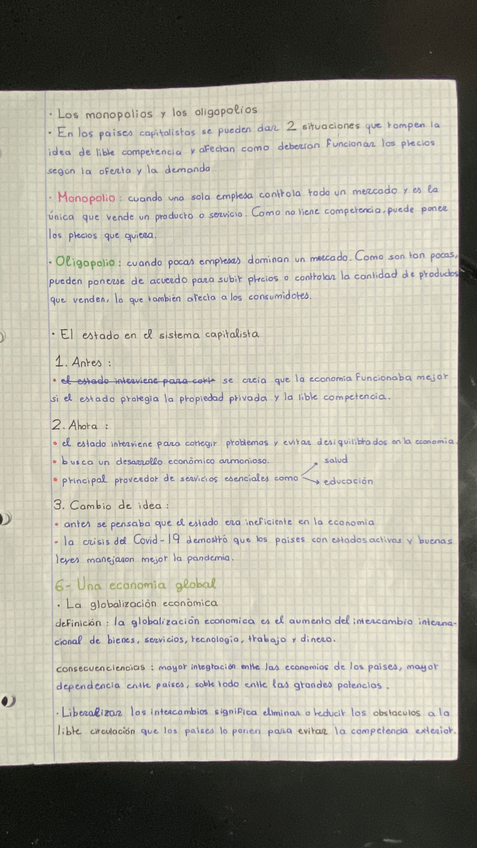 · Los monopolios y los oligopolios
· En los paises capitalistas se pueden dar 2 situaciones que rompen la
idea de libre competencia y afectan como deberian funcionar los precios
segun la oferta y la demanda
· Monopolio : cuando una sola empresa controla todo un mercado y es la
única que vende un producto o servicio. Como no tiene competencia, puede poner
los precios que quiera.
· Oligopolio : cuando pocas empresas dominan un mercado. Como son tan pocas,
pueden ponerse de acuerdo para subir precios o controlar la cantidad de productos
que venden, lo que tambien afecta a los consumidores.
· El estado en el sistema capitalista
1. Antes :
· el estado interviene para corir se creia que la economia funcionaba mejor
si el estado protegia la propiedad privada y la libre competencia.
2. Ahora :
· el estado interviene para corregir problemas y evitar desiquilibrados en la economia.
· busca un desarollo económico armonioso.
· principal proveedor de servicios esenciales como → salud
→ educación
3. Cambio de idea :
· antes se pensaba que el estado era ineficiente en la economia
· la crisis del Covid-19 demostró que los paises con estados activos y buenas
leyes manejaron mejor la pandemia.
6- Una economia global
· La globalización económica
definición : la globalización economica es el aumento del intercambio interna-
cional de bienes, servicios, tecnologia, trabajo y dinero.
consecuenciencias : mayor integración entre las economios de los paises, mayor
dependencia entre paises, sobre todo entre las grandes potencias.
· Liberalizar los intercambios significa eliminar o reducir los obstaculos a la
libre circulación que los paises lo ponen para evitar la competencia exterior.